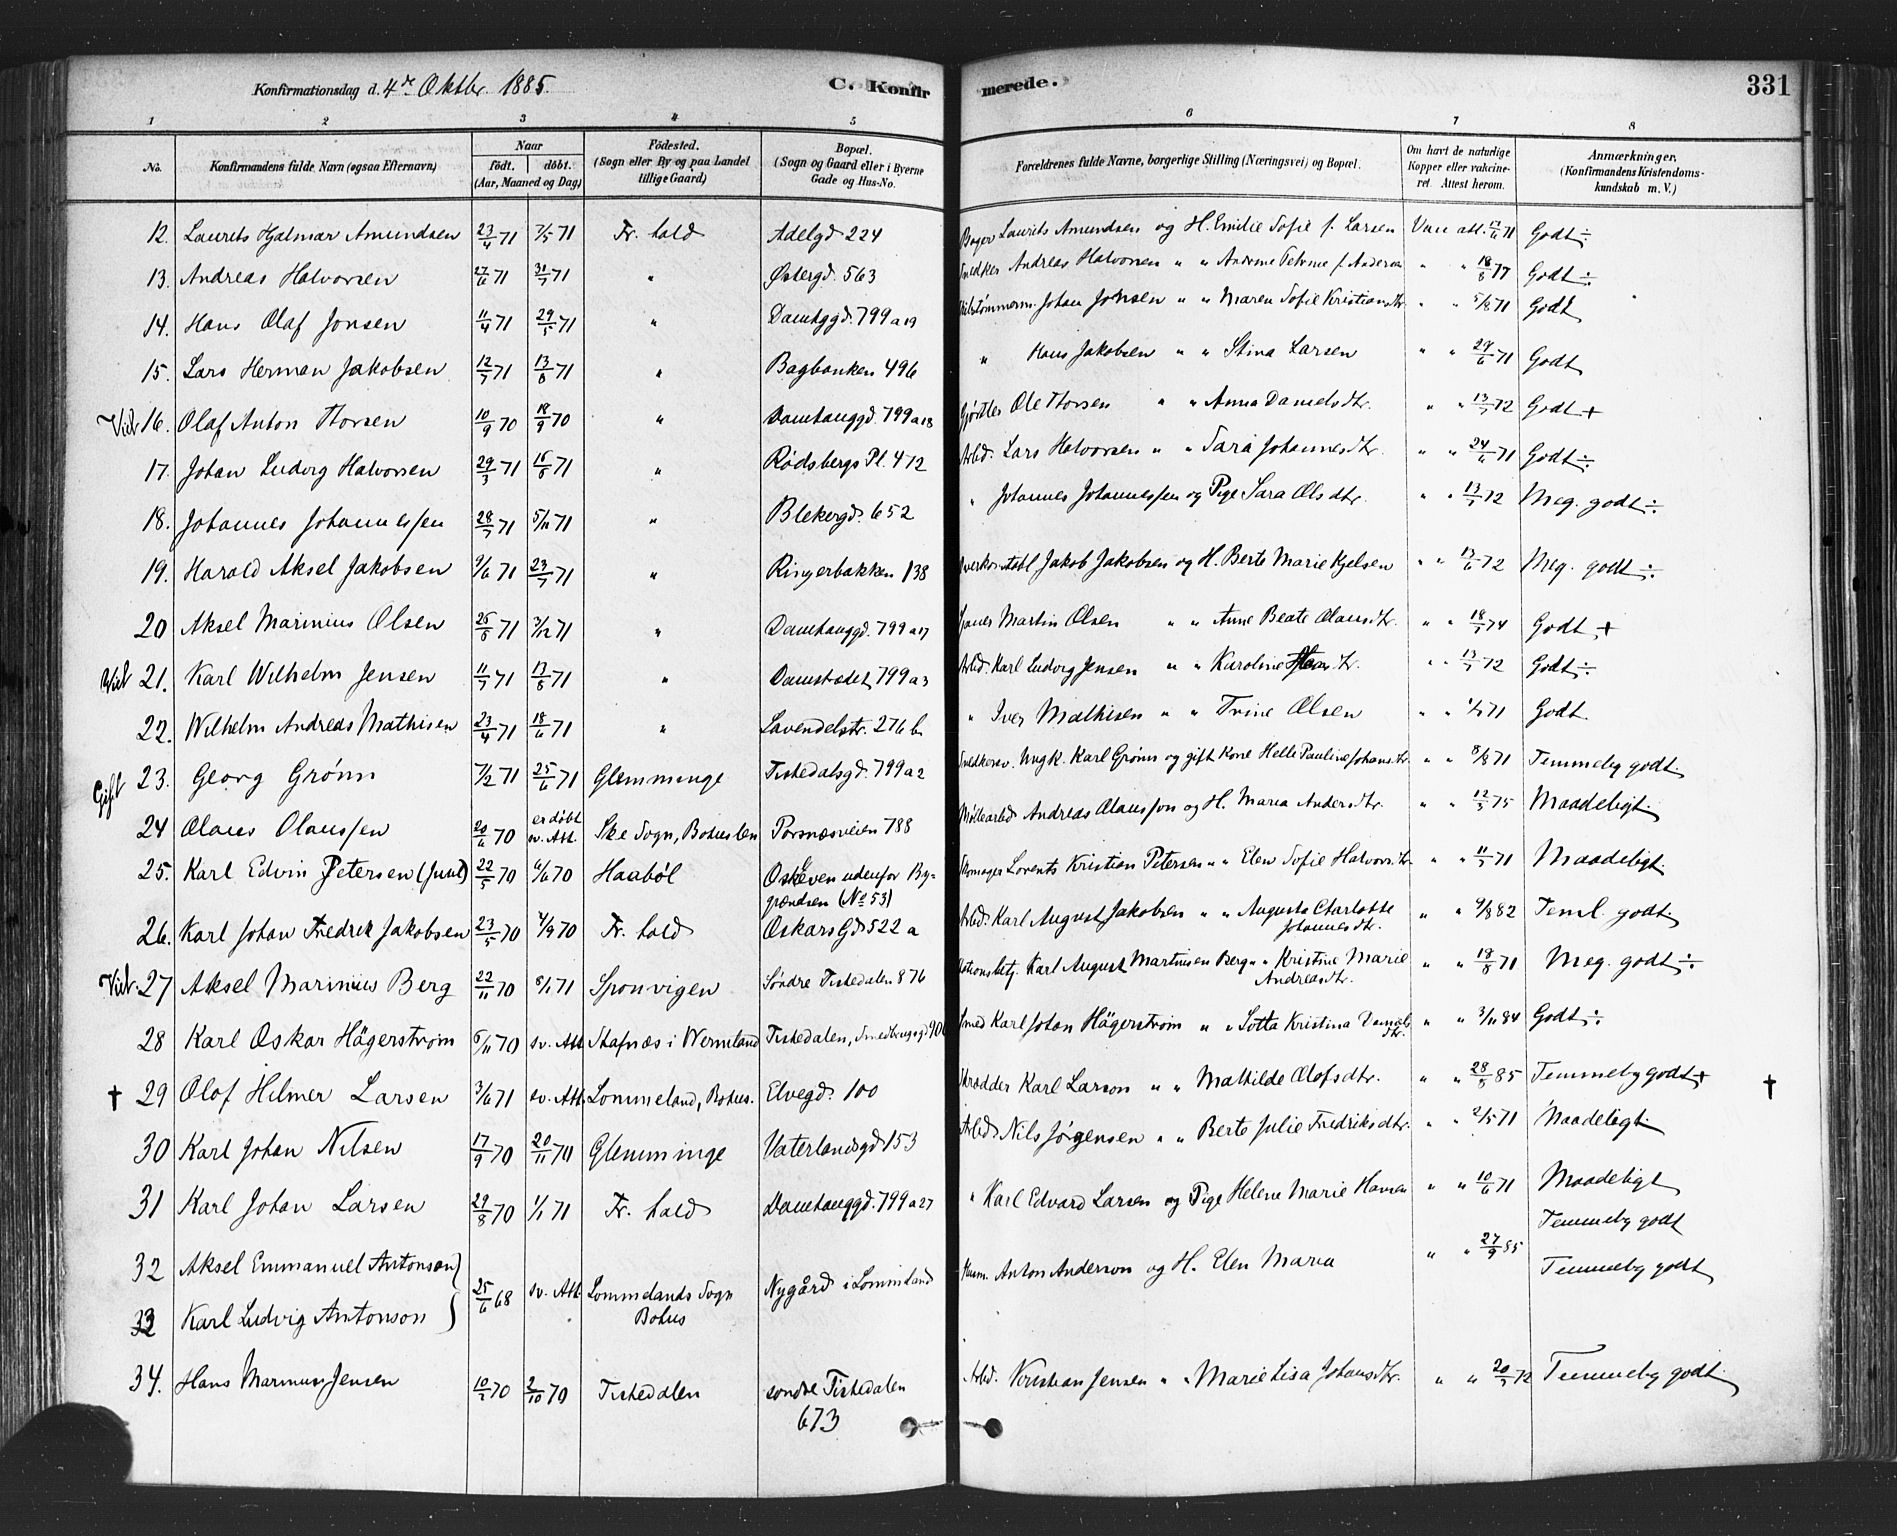 Konfirmationsdag d. 4de Oktbr. 1885.
C. Konfirmerede.
331
1 2 3 4 5 6 7 8
No.
Konfirmandens fulde Navn (ogsaa Efternavn)
Naar
født. døbt.
(Aar, Maaned og Dag)
Fødested.
(Sogn eller By og paa Landet
tillige Gaard)
Bopæl.
(Sogn og Gaard eller i Byerne
Gade og Hus-No.
Forældrenes fulde Navne, borgerlige Stilling (Næringsvei) og Bopæl.
Om havt de naturlige
Kopper eller vakcine-
ret. Attest herom.
Anmærkninger.
(Konfirmandens Kristendoms-
kundskab m. V.)
12. Laurits Hjalmar Amundsen 23/4 71 7/5 71 Fr.hald Adelgd 224 Bager Laurits Amundsen og H. Emilie Sofie f. Larsen Vac. att. 71 Godt ÷
13. Andreas Halvorsen 27/6 71 31/7 71 " Østergd. 563 Snedker Andreas Halvorsen " " " " 18/8 77 Godt ÷
14. Hans Olaf Jonsen 11/4 71 29/5 71 " Damhggd. 799 a 19 Johan Johnsen " " Maren Sofie Kristiansdtr. " " 5/8 71 Godt
15. Lars Herman Jakobsen 12/7 71 13/8 71 " Bagbanken 496 " Hans Jakobsen " " Stina Larsen " " 29/6 71 Godt
Viet 16. Olaf Anton Thorsen 10/9 70 18/9 70 " Damhauggd 799 a 18 Gjørtler Ole Thorsen " " Anna Danielsdtr. " " 13/7 72 Godt +
17. Johan Ludvig Halvorsen 29/3 71 71 " Rødsbergs Pl. 472 Arbd. Lars Halvorsen " " Sara Johannesdtr. " " 24/6 71 Godt ÷
18. Johannes Johannessen 28/7 71 5/11 71 " Blekergd. 652 " Johannes Johannessen og Pige Sara Olsdtr. " " 13/7 72 Meg. godt ÷
19. Harald Aksel Jakobsen 71 23/7 71 " Ringerbakken 138 Jakob Jakobsen og H. Berte Marie Kjelsen " " 13/6 72 Meg. godt ÷
20 Aksel Marinius Olsen 71 3/12 71 " Damhauggd. 799 a 17 Martin Olsen " " Anne Beate Olausdtr. " " 18/7 74 Godt +
Viet 21. Karl Wilhelm Jensen 11/7 71 13/8 71 " Damstædet 799 a 3 Arbd. Karl Ludvig Jensen " " Karoline " " 13/7 72 Godt ÷
22. Wilhelm Andreas Mathisen 23/4 71 18/6 71 " Lavendelstr. 276 b " Iver Mathisen " " Trine Olsen " " 71 Godt
Gift 23. Georg Grønn 7/2 71 25/6 71 Glemminge Tistedalsgd. 799 a 2 Snedkersv. Ungk. Karl Grønn og gift Kone Helle Pauline Johansdtr. " " 8/8 71 Temmelig godt
24 Olaus Olaussen 20/6 70 er døbt sv. Att. Ske Sogn, Bohuslen Porsnæsveien 788 Møllearbd Andreas Olaussen og H. Maria Andersdtr. " " 12/3 75 Maadeligt
25. Karl Edvin Petersen (Juul) 22/5 70 6/6 70 Haabøl Oskleven udenfor By-
grændsen (No 53) Skomager Lorents Kristian Petersen " " Elen Sofie Halvorsdtr. " " 11/7 71 Maadeligt
26. Karl Johan Fredrek Jakobsen 23/5 70 4/9 70 Fr.hald Oskars Gd 522 a Arbd. Karl August Jakobsen " " Augusta Charlotte
Johannesdtr. " " 9/8 82 Teml. godt.
Viet 27 Aksel Marinius Berg 22/11 70 8/1 71 Sponvigen Søndre Tistedalen 876 Karl August Martinsen Berg " " Kristine Marie
Andreasdtr. " " 18/8 71 Meg. godt ÷
28 Karl Oskar Hägerstrøm 6/11 70 sv. Att Stafnæs i Wermland Tistedalen, Smedbaugsgd 900 Smed Karl Johan Hägerstrøm " " Lotta Kristina Danielsdtr. " " 3/11 84 Godt ÷
† 29 Olof Hilmer Larsen 3/6 71 sv. Att. Lommeland, Bohus. Elvegd. 100 Skrædder Karl Larson " " Mathilde Olofsdtr. " " 28/5 85 Temmelig godt + †
30 Karl Johan Nilsen 17/9 70 20/11 70 Glemminge Vaterlandsgd 153 Arbd. Nils Jørgensen " " Berte Julie Fredriksdtr. " " 2/5 71 Maadeligt
31 Karl Johan Larsen 29/8 70 1/1 71 Fr.hald Damhauggd. 799 a 27 " Karl Edvard Larsen og Pige Helene Marie Hansen " " 10/6 71 Maadeligt
32 Aksel Emmanuel Antonson } Temmelig godt
25/6 68 sv. Att Lommelands Sogn
Bohus Nygård i Lommland Husm. Anton Anderson og H. Elen Maria " " 27/9 85
33 Karl Ludvig Antonson } Temmelig godt
34. Hans Marinius Jensen 70 2/10 70 Tistedalen søndre Tistedalen
673 Arbd. Kristian Jensen " " Marie Lisa Johansdtr. " " 20/7 72 Temmelig godt